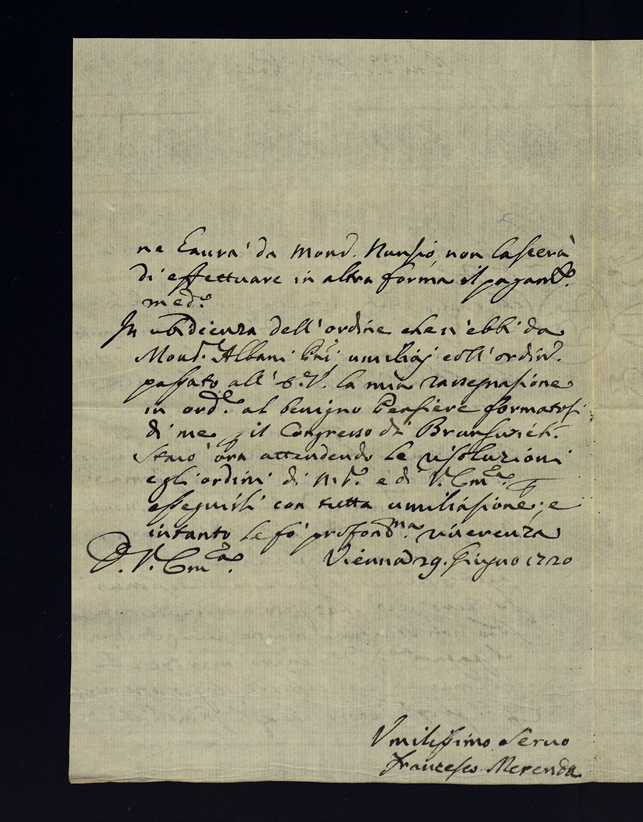 ne l'aurà da Mons.r Nunsio, non lascerà
di effettuare in altra forma il pagam.to
med.o
In ubidienza dell'ordine che n'ebbi da
Mons.r Albani umiliaj coll'ordin.o
passato all' la mia rassegnasione
in ord.e al benigno Pensiere formatosi
di me il Congresso di Brunsuich.
Starò ora attendendo le risoluzioni
e gli ordini di N. S.re e di V. Em.za
esseguirli con tutta umiliasione; e
intanto le fò profond.ma riverenza
D. V. Em.za Vienna 29. Giugno 1720
Umilissimo Seruo
Francesco Merenda